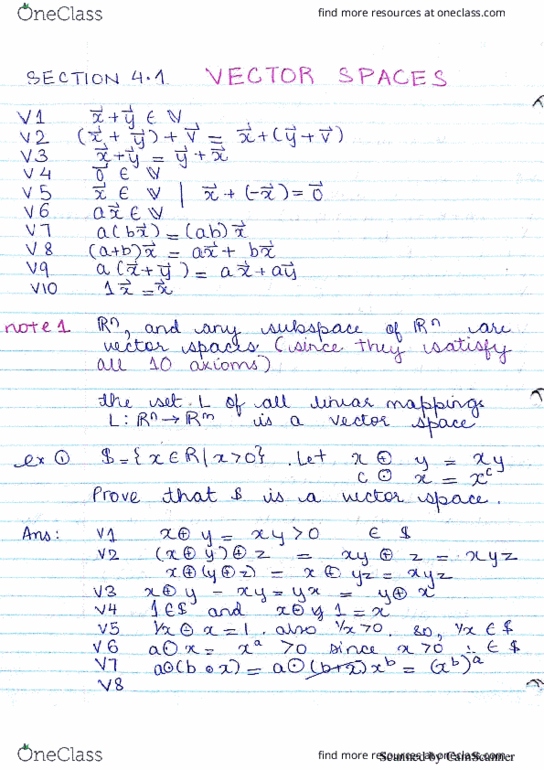 OneClass find more resources at oneclass.com
SECTION 4.1 VECTOR SPACES
V1 x⃗+y⃗ ∈ V
V2 (x⃗+y⃗)+v⃗ = x⃗+(y⃗+v⃗)
V3 x⃗+y⃗ = y⃗+x⃗
V4 0⃗ ∈ V
V5 x⃗ ∈ V | x⃗+(-x⃗)=0⃗
V6 ax⃗ ∈ V
V7 a(bx⃗)=(ab)x⃗
V8 (a+b)x⃗ = ax⃗+ bx⃗
V9 a(x⃗+y⃗)= ax⃗+ay⃗
V10 1x⃗ =x⃗
note 1 ℝⁿ, and any subspace of ℝⁿ are
vector spaces (since they satisfy
all 10 axioms)
the set L of all linear mappings
L: ℝⁿ→ℝᵐ is a vector space
ex ① $={x∈R|x>0}. Let x ⊕ y = xy
c ⊙ x = xᶜ
Prove that $ is a vector space.
Ans: V1 x⊕y = xy>0 ∈ $
V2 (x⊕y)⊕z = xy ⊕ z = xyz
x⊕(y⊕z) = x ⊕ yz = xyz
V3 x⊕y - xy=yx = y⊕x
V4 1∈$ and 1=x
V5 1/x ⊕ x=1. also 1/x>0. so, 1/x ∈ $
V6 a⊙x= xᵃ >0 since x>0 ∴ ∈ $
V7 a⊙(b⊙x)= a⊙ xᵇ = (xᵇ)ᵃ
V8
OneClass find more resources at oneclass.com
Scanned by CamScanner